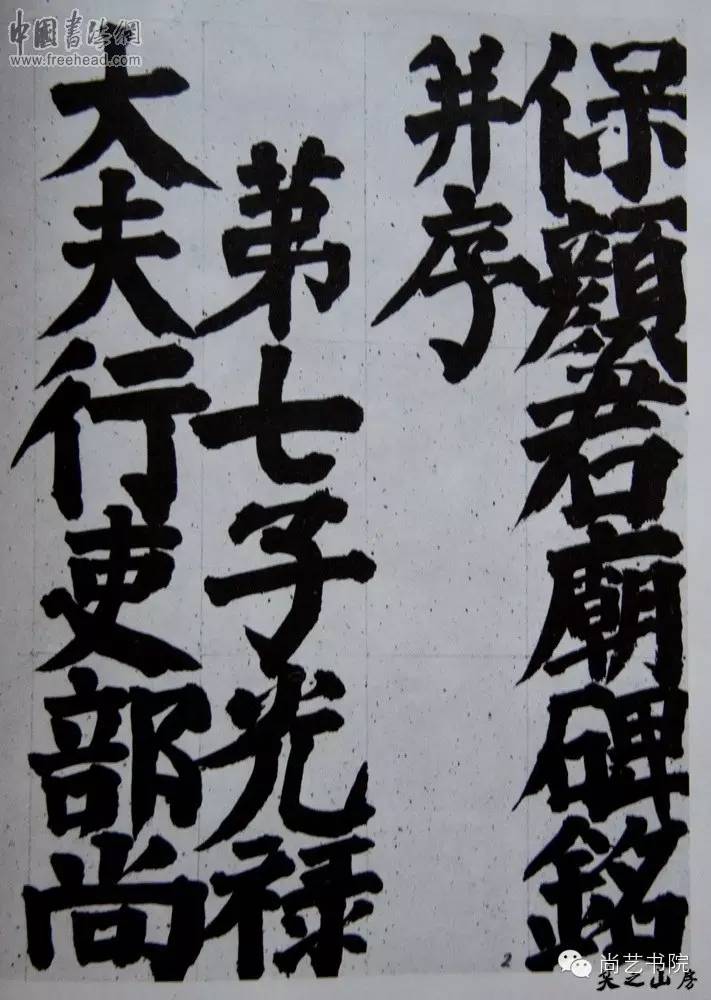 保顏君廟碑銘
并序
第七子光禄
大夫行吏部尚
中國書法網
www.freehead.com
2
尚艺书院